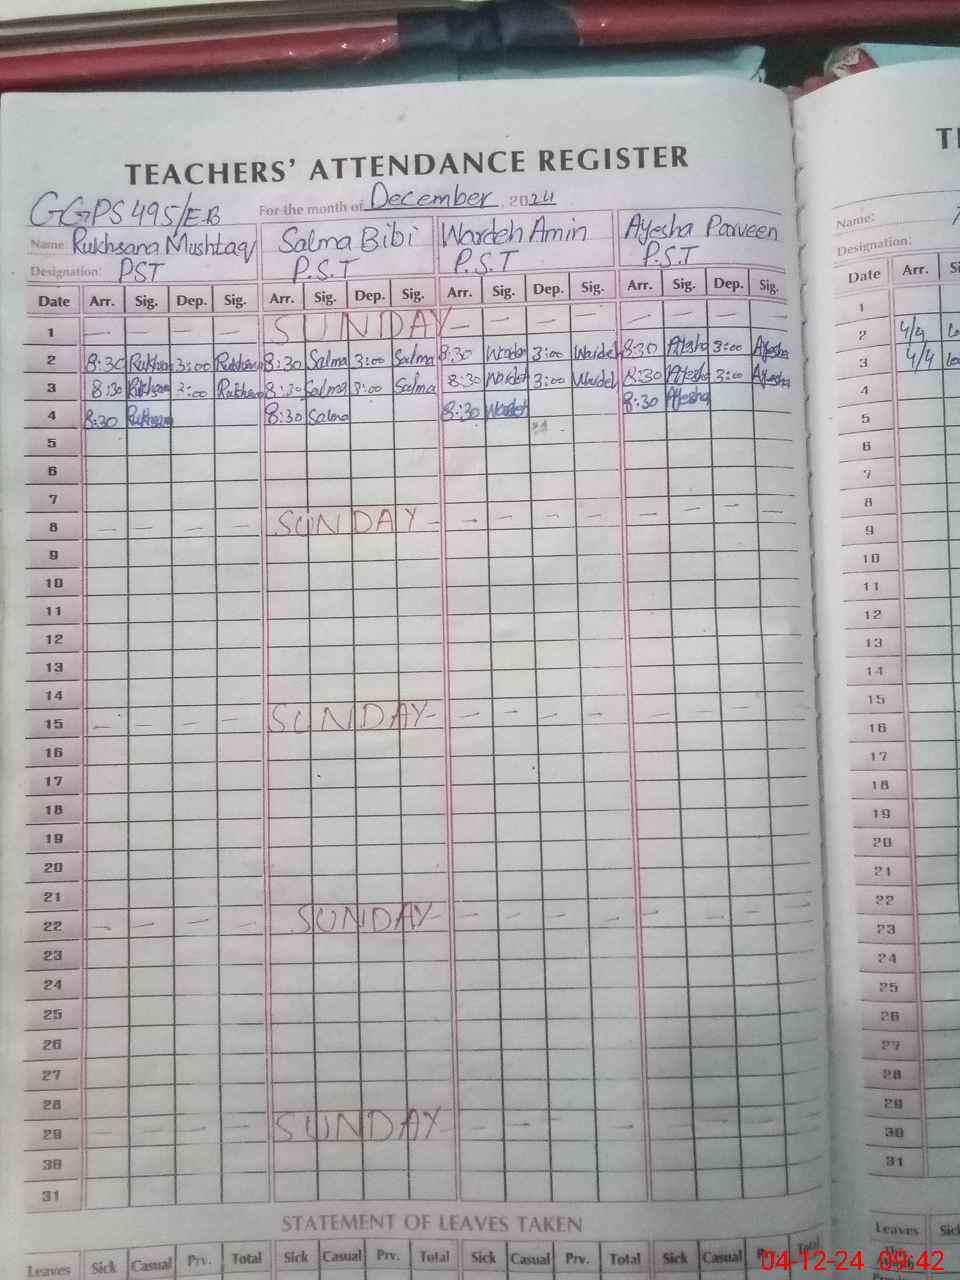 TEACHERS' ATTENDANCE REGISTER
GGPS 495/EB For the month of December 2024
Name: Rukhsana Mushtaq Salma Bibi Wardeh Amin Ayesha Parveen
Designation: PST P.S.T P.S.T P.S.T
Date Arr. Sig. Dep. Sig. Arr. Sig. Dep. Sig. Arr. Sig. Dep. Sig. Arr. Sig. Dep. Sig.
1 — — — — SUNDAY — — — — — — — —
2 8:30 Rukhsana 3:00 Rukhsana 8:30 Salma 3:00 Salma 8:30 Wardeh 3:00 Wardeh 8:30 Ayesha 3:00 Ayesha
3 8:30 Rukhsana 3:00 Rukhsana 8:30 Salma 3:00 Salma 8:30 Wardeh 3:00 Wardeh 8:30 Ayesha 3:00 Ayesha
4 8:30 Rukhsana 8:30 Salma 8:30 Wardeh 8:30 Ayesha
5
6
7
8 — — — — SUNDAY — — — — — — — — —
9
10
11
12
13
14
15 — — — — SUNDAY — — — — — — — — —
16
17
18
19
20
21
22 — — — — SUNDAY — — — — — — — — —
23
24
25
26
27
28
29 — — — — SUNDAY — — — — — — — —
30
31
STATEMENT OF LEAVES TAKEN
Leaves Sick Casual Prv. Total Sick Casual Prv. Total Sick Casual Prv. Total Sick Casual Total
Name:
Designation:
Date Arr.
1
2 4/4
3 4/4
4
5
6
7
8
9
10
11
12
13
14
15
16
17
18
19
20
21
22
23
24
25
26
27
28
29
30
31
Leaves
04-12-24 09:42